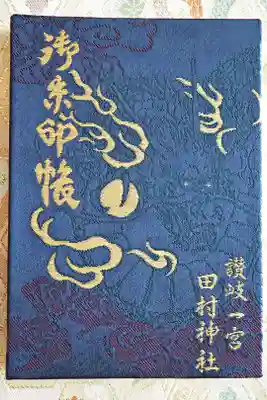 御朱印帳
讃岐一宮
田村神社